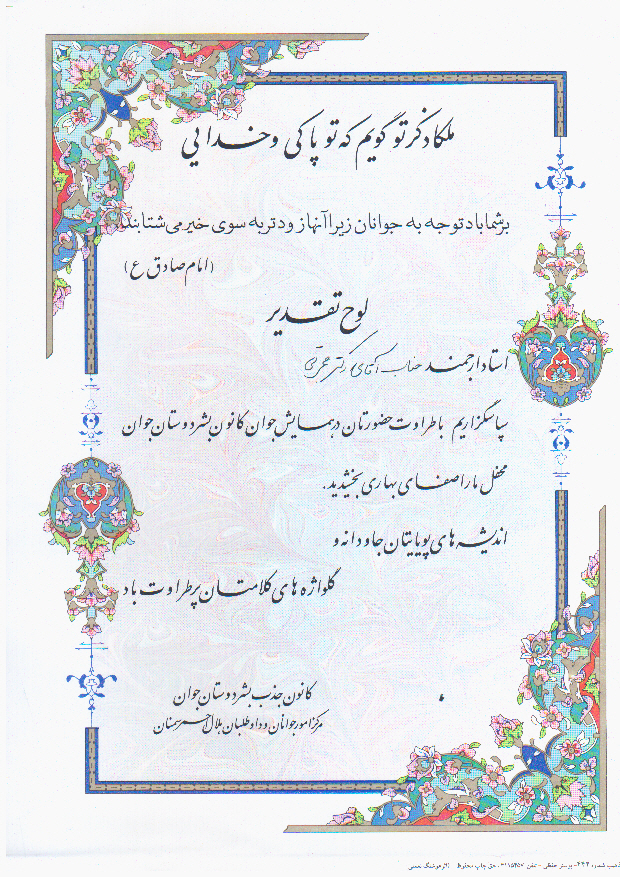 ملکا ذکر تو گویم که تو پاکی و خدایی
بر شما باد توجه به جوانان زیرا آنها زودتر به سوی خیر می شتابند
(امام صادق ع)
لوح تقدیر
استاد ارجمند جناب آقای دکتر
سپاسگزاریم با طراوت حضورتان در همایش جوان کانون بشردوستان جوان
محفل ما را صفای بهاری بخشیدید.
اندیشه های پویایتان جاودانه و
گلواژه های کلامتان پرطراوت باد
کانون جذب بشردوستان جوان
مرکز امور جوانان و داوطلبان هلال احمر سمنان